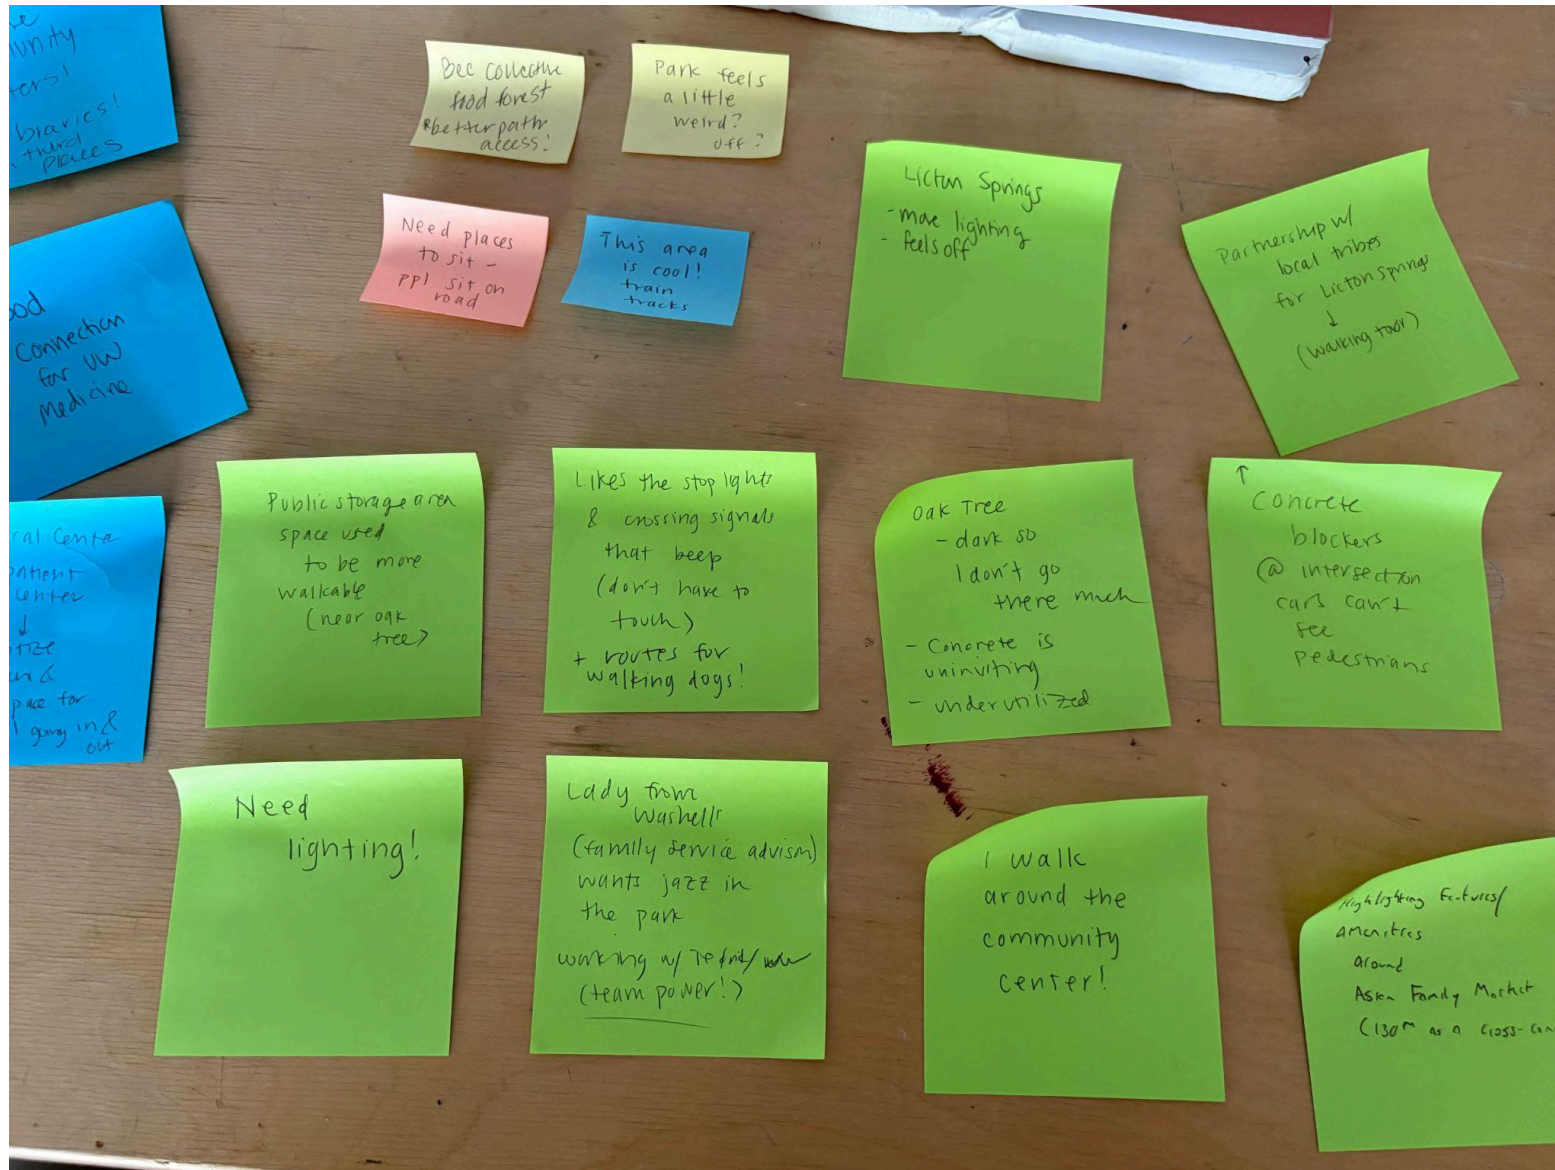 unity
ters!
braries!
third
places
ood
Connection
for UW
Medicine
cal Center
patient
Center
↓
tize
&
pace for
going in &
out
Bee Collective
food forest
*better path
access!
Park feels
a little
weird?
off?
Need places
to sit -
ppl sit on
road
This area
is cool!
train
tracks
Licton Springs
- more lighting
- feels off
Partnership w/
local tribes
for Licton Springs
↓
(walking tour)
Public storage area
space used
to be more
walkable
(near oak
tree)
Likes the stop lights
& crossing signals
that beep
(don't have to
touch)
+ routes for
walking dogs!
Oak Tree
- dark so
I don't go
there much
- Concrete is
uninviting
- underutilized
↑
Concrete
blockers
@ intersection
cars can't
see
pedestrians
Need
lighting!
Lady from
Washelli
(family service advisor)
wants jazz in
the park
working w/
(team power!)
I walk
around the
community
center!
Highlighting Features/
Amenities
around
Asian Family Market
(130th as a cross-con